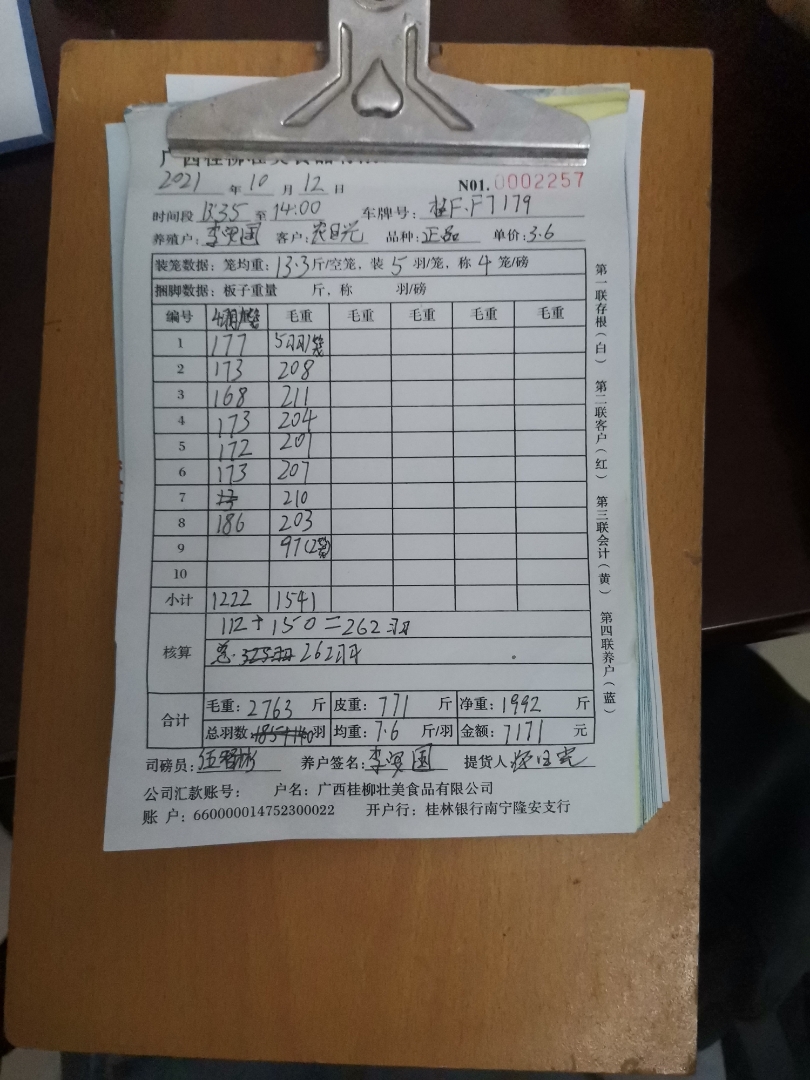 广西桂柳壮美食品有限
2021 年 10 月 12 日 N01. 0002257
时间段 13:35 至 14:00 车牌号: 桂F·F7179
养殖户: 李贤国 客户: 农日光 品种: 正品 单价: 3.6
装笼数据: 笼均重: 13.3 斤/空笼, 装 5 羽/笼, 称 4 笼/磅
捆脚数据: 板子重量 斤, 称 羽/磅
编号 4羽/笼 毛重 毛重 毛重 毛重 毛重
1 177 5羽/笼
2 173 208
3 168 211
4 173 204
5 172 201
6 173 207
7 210
8 186 203
9 97(2笼)
10
小计 1222 1541
核算 112+150=262羽
总·325羽 262羽
合计 毛重: 2763 斤 皮重: 771 斤 净重: 1992 斤
总羽数: 185+140 羽 均重: 7.6 斤/羽 金额: 7171 元
司磅员: 养户签名: 李贤国 提货人
公司汇款账号: 户名: 广西桂柳壮美食品有限公司
账 户: 660000014752300022 开户行: 桂林银行南宁隆安支行
第一联存根(白) 第二联客户(红) 第三联会计(黄) 第四联养户(蓝)